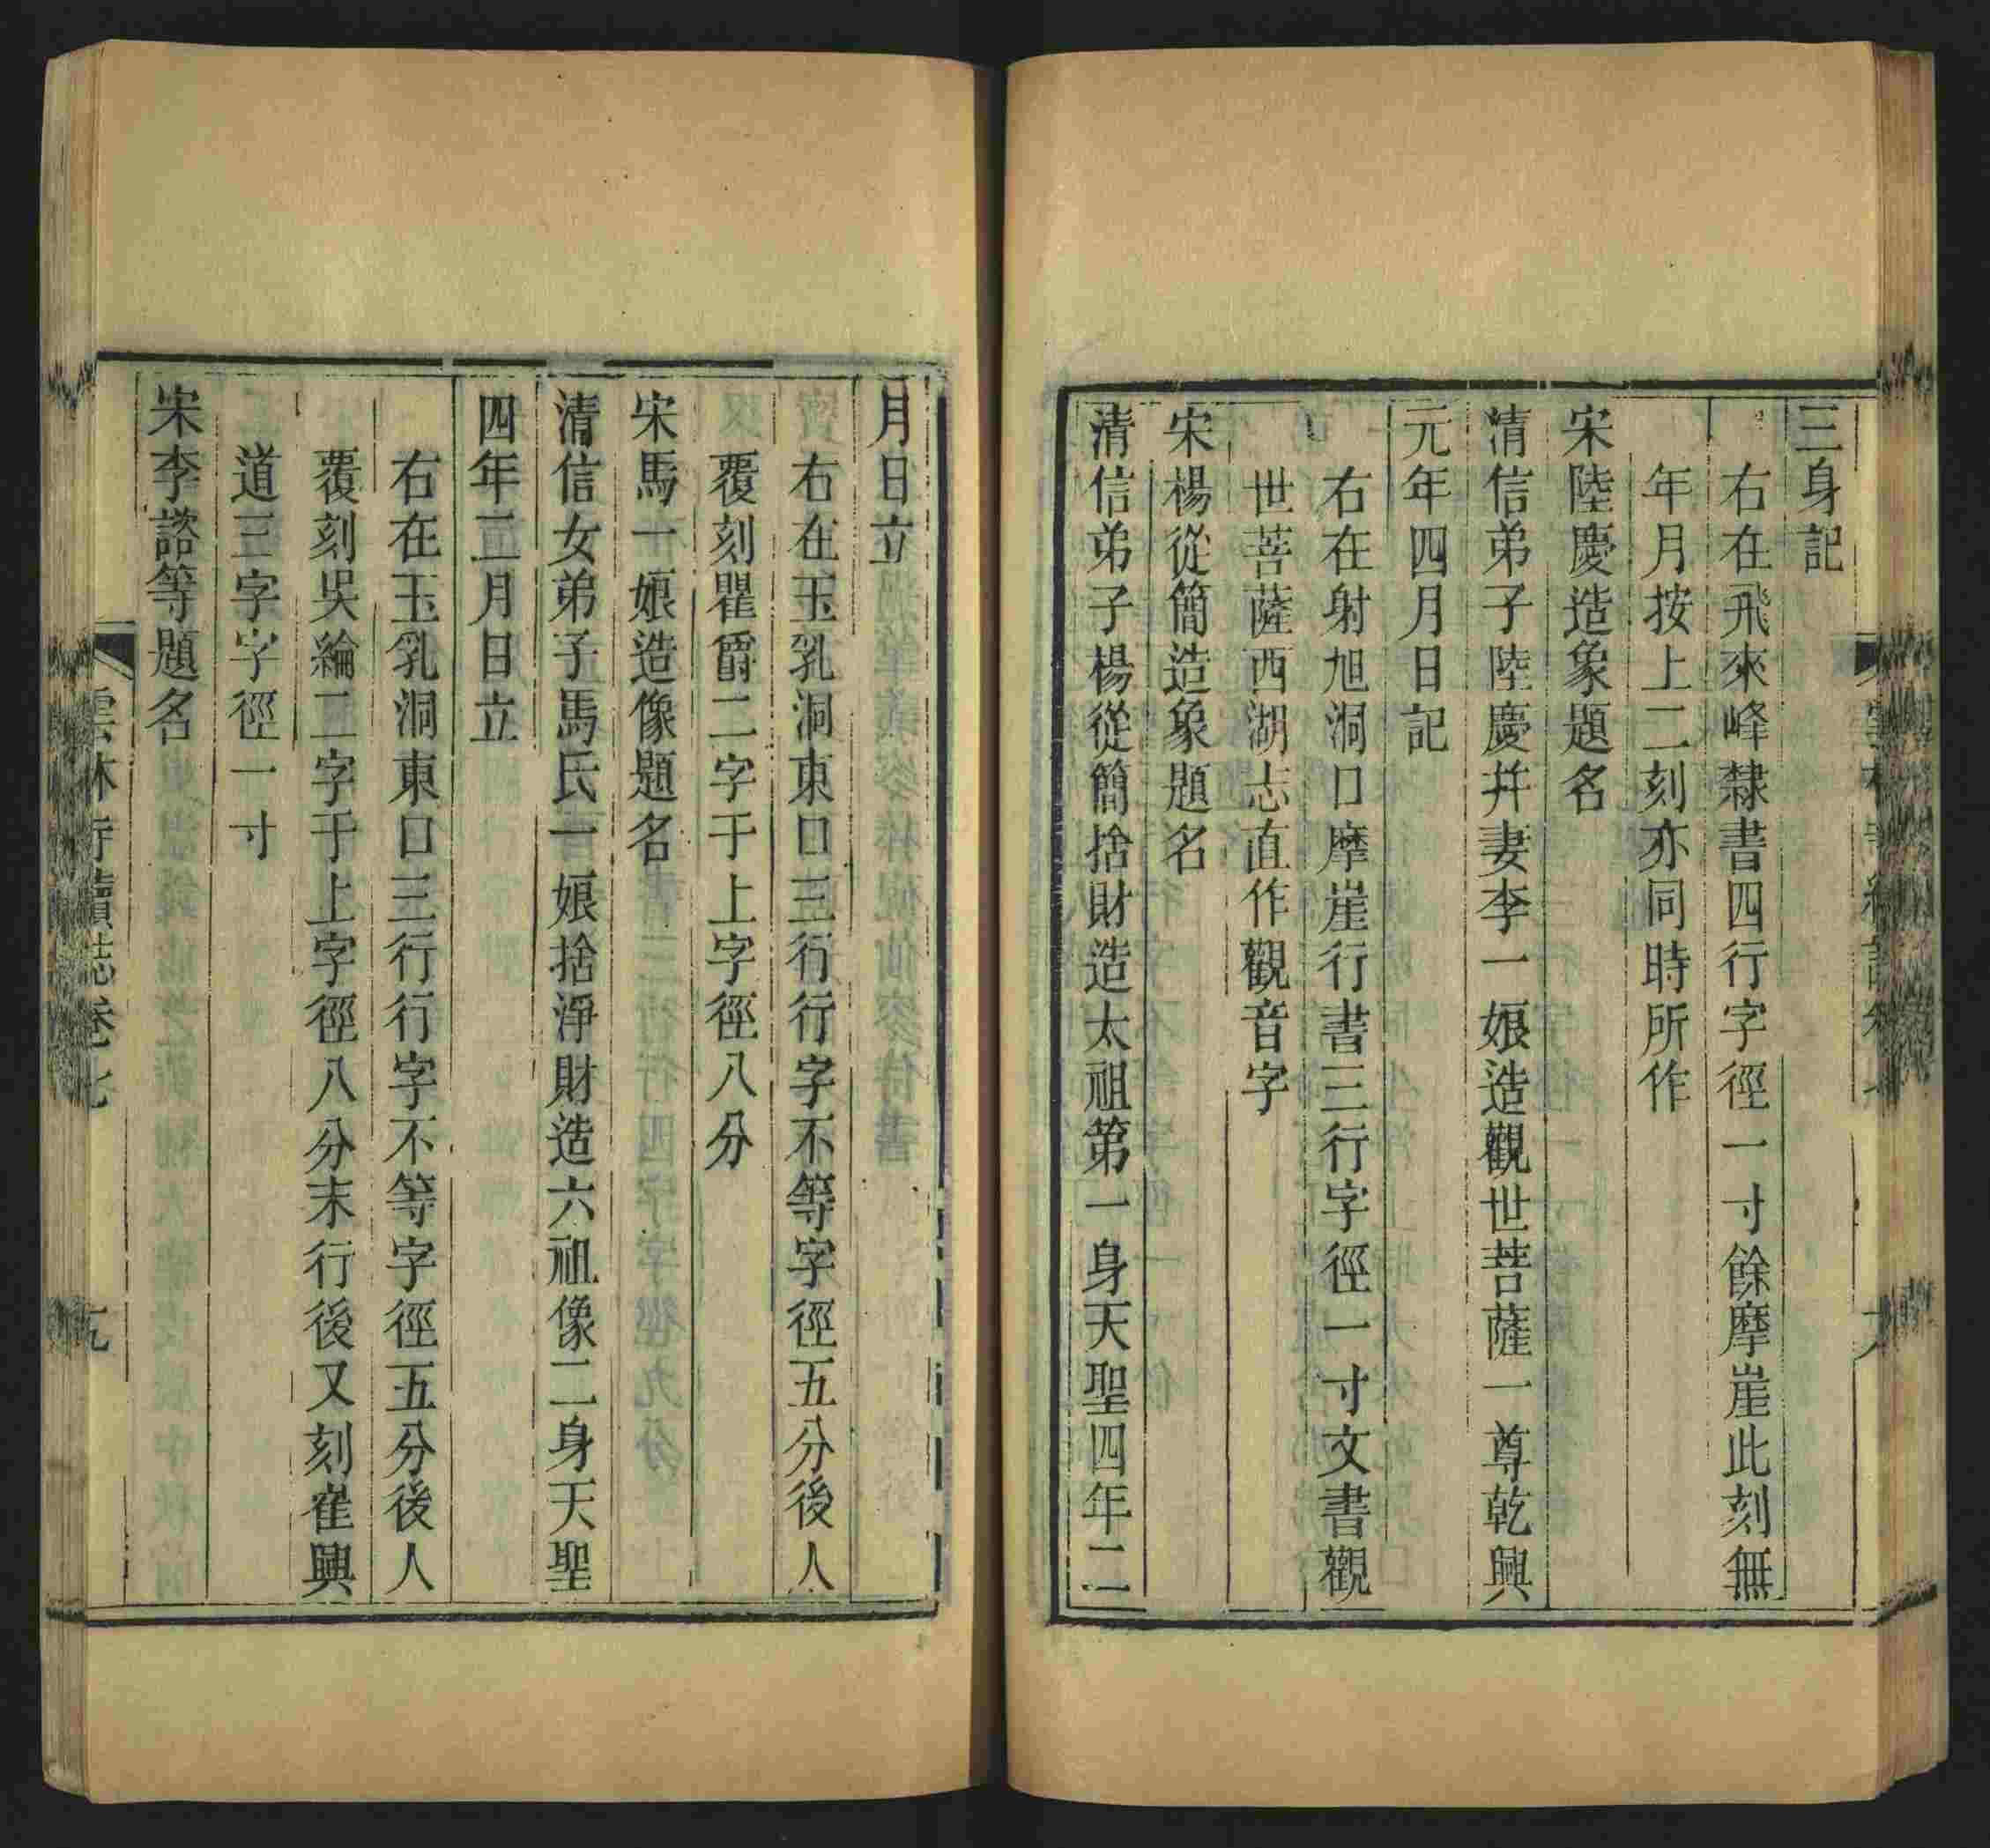 三身記
右在飛來峰隸書四行字徑一寸餘摩崖此刻無
年月按上二刻亦同時所作
宋陸慶造象題名
清信弟子陸慶幷妻李一娘造觀世菩薩一尊乾興
元年四月日記
右在射旭洞口摩崖行書三行字徑一寸文書觀
世菩薩西湖志直作觀音字
宋楊從簡造象題名
清信弟子楊從簡捨財造太祖第一身天聖四年二
月日立
右在玉乳洞東口三行行字不等字徑五分後人
覆刻瞿爵二字于上字徑八分
宋馬一娘造像題名
清信女弟子馬氏一娘捨淨財造六祖像二身天聖
四年二月日立
右在玉乳洞東口三行行字不等字徑五分後人
覆刻吳綸二字于上字徑八分末行後又刻崔興
道三字字徑一寸
宋李諮等題名
雲林寺續誌卷七